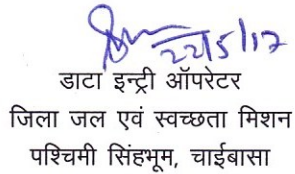 22/5/17
डाटा इन्ट्री ऑपरेटर
जिला जल एवं स्वच्छता मिशन
पश्चिमी सिंहभूम, चाईबासा